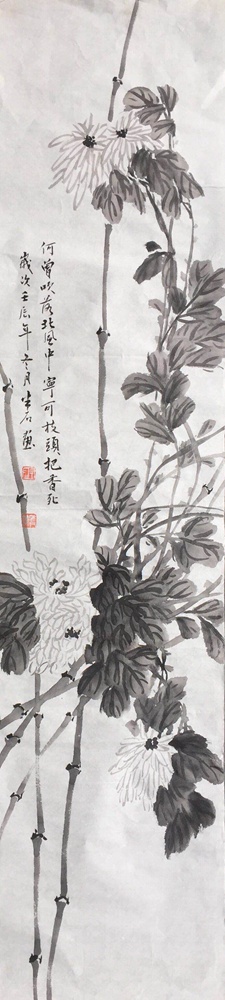 何曾吹落北風中寧可枝頭抱香死
歲次壬辰年冬月石畫